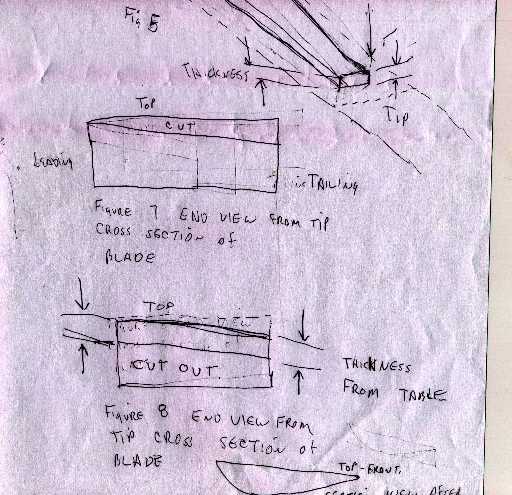 Fig 5
THICKNESS
TIP
TOP
CUT
Leading
TAILING
FIGURE 7 END VIEW FROM TIP
CROSS SECTION of
BLADE
TOP
CUT OUT.
THICKNESS
FROM TABLE
FIGURE 8 END VIEW FROM
TIP CROSS SECTION of
BLADE
TOP-FRONT.
VIEW AFTER